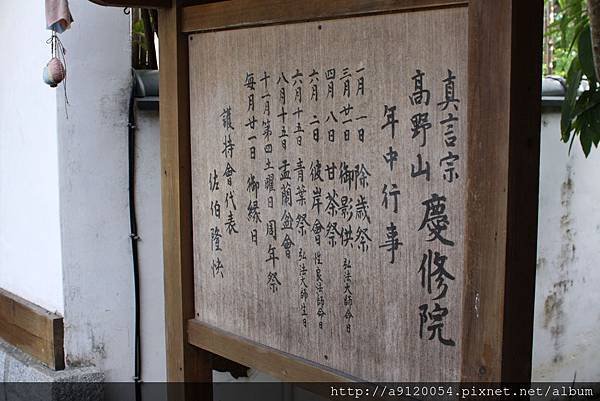 真言宗
高野山 慶修院
年中行事
一月一日 除歳祭
三月廿一日 御影供 弘法大師命日
四月八日 甘茶祭
六月二日 彼岸會 性良法師命日
六月十五日 青葉祭 弘法大師生日
八月十五日 盂蘭盆會
十一月第四土曜日 周年祭
毎月廿一日 御縁日
護持會代表
佐伯隆快
http://a9120054.pixnet.net/album